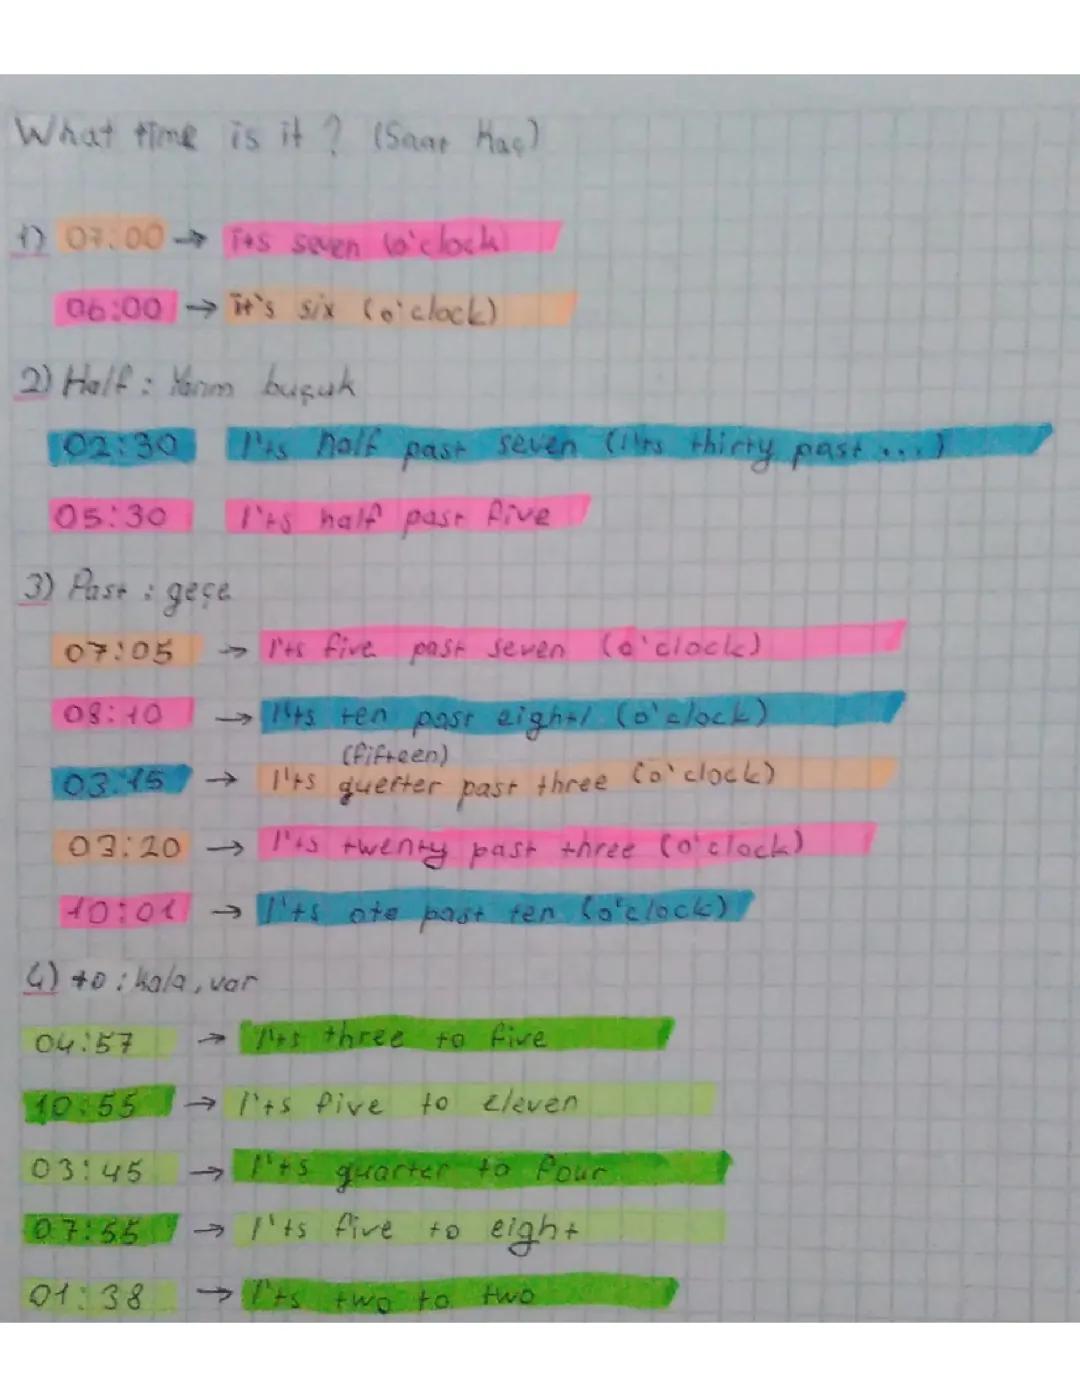 What time is it? (Saat Kaç)
1) 07:00 → it's seven (o'clock)
06:00 → it's six (o'clock)
2) Half : Yarım buçuk
02:30 I'ts half past seven (I'ts thirty past ...)
05:30 I'ts half past five
3) Past : geçe
07:05 → I'ts five past seven (o'clock)
08:10 → I'ts ten past eight (o'clock)
(fifteen)
03:15 → I'ts querter past three (o'clock)
03:20 → I'ts twenty past three (o'clock)
10:01 → I'ts ote past ten (o'clock)
4) to : kala, var
04:57 → I'ts three to five
10:55 → I'ts five to eleven
03:45 → I'ts quarter to four
07:55 → I'ts five to eight
01:38 → I'ts two to two